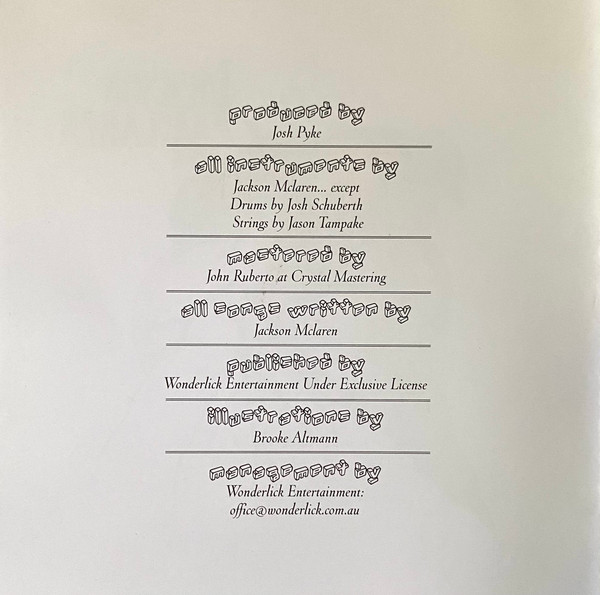 produced by
Josh Pyke
all instruments by
Jackson Mclaren... except
Drums by Josh Schuberth
Strings by Jason Tampake
mastered by
John Ruberto at Crystal Mastering
all songs written by
Jackson Mclaren
published by
Wonderlick Entertainment Under Exclusive License
illustrations by
Brooke Altmann
management by
Wonderlick Entertainment:
office@wonderlick.com.au